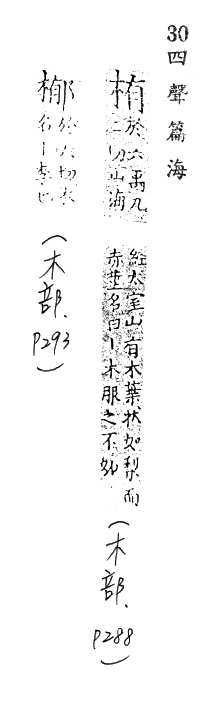 30 四聲篇海
栯
於六禹九
二切山海
經太室山有木葉狀如梨而
赤莖名曰丨木服之不
(木部.P288)
於六切木
名丨李也
(木部.P293)